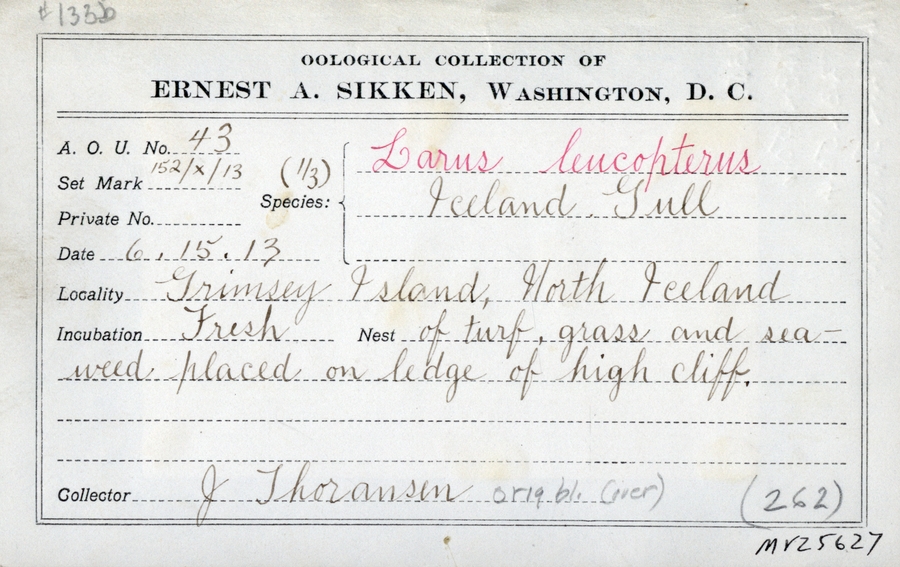 #133b
OOLOGICAL COLLECTION OF
ERNEST A. SIKKEN, WASHINGTON, D. C.
A. O. U. No. 43
Set Mark 152/x/13 (1/3)
Private No.
Date 6.15.13
Species: Larus leucopterus
Iceland Gull
Locality Grimsey Island, North Iceland
Incubation Fresh Nest of turf, grass and sea-
weed placed on ledge of high cliff.
Collector J Thoransen (over) (262)
MVZ5627